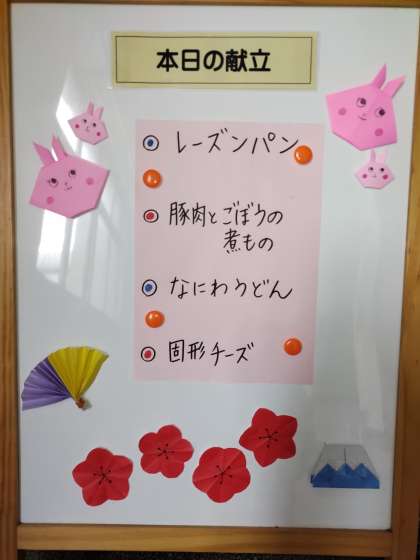 本日の献立
レーズンパン
豚肉とごぼうの
煮もの
なにわうどん
固形チーズ